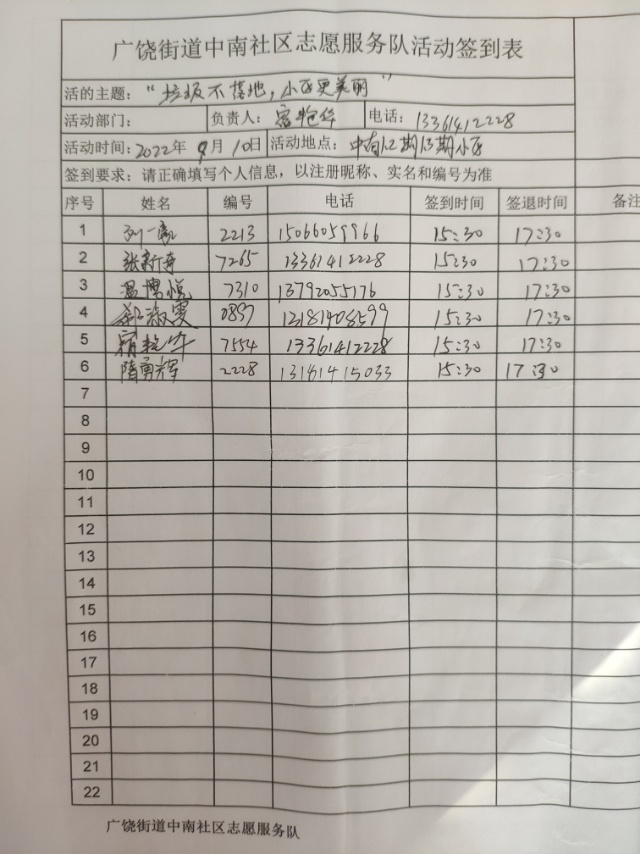 广饶街道中南社区志愿服务队活动签到表
活的主题:“垃圾不落地,小区更美丽”
活动部门: 负责人: 电话:13361412228
活动时间:2022年9月10日 活动地点:
签到要求:请正确填写个人信息,以注册昵称、实名和编号为准
序号 姓名 编号 电话 签到时间 签退时间 备注
1 刘一豪 2213 15066059966 15:30 17:30
2 7265 13361412228 15:30 17:30
3 温博悦 7310 13792055176 15:30 17:30
4 郝淑雯 0897 12181908599 15:30 17:30
5 7554 13361412228 15:30 17:30
6 隋勇辉 2228 13181415033 15:30 17:30
7
8
9
10
11
12
13
14
15
16
17
18
19
20
21
22
广饶街道中南社区志愿服务队